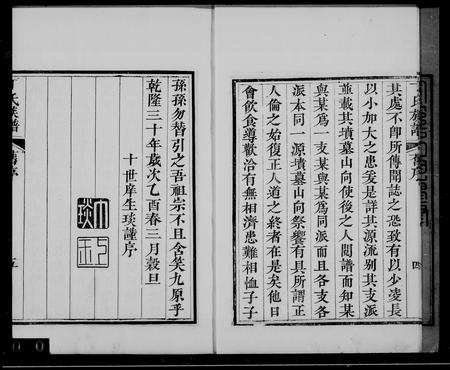 其處不卽所傳聞誌之恐致有以少凌長
以小加大之患爰是詳其源流别其支派
並載其墳墓山向使後之人閱譜而知某
與某爲一支某與某爲同派而且各支各
派本同一源墳墓山向祭饗有具所謂正
人倫之始復正人道之終者在是矣他日
會飲食導歡洽有無相濟患難相恤子子
四
孫孫勿替引之吾祖宗不且含笑九原乎
乾隆三十年歲次乙酉春三月穀旦
十世庠生琰謹序
氏族譜
舊序
五
0 0